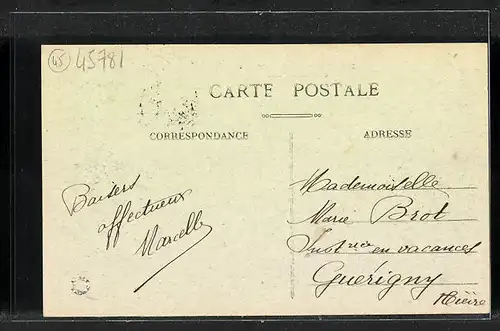 45 45781
CARTE POSTALE
CORRESPONDANCE
ADRESSE
Baisers
affectueux
Marcelle
Mademoiselle
Marie Brot
Inst rice en vacances
Guérigny
Nièvre